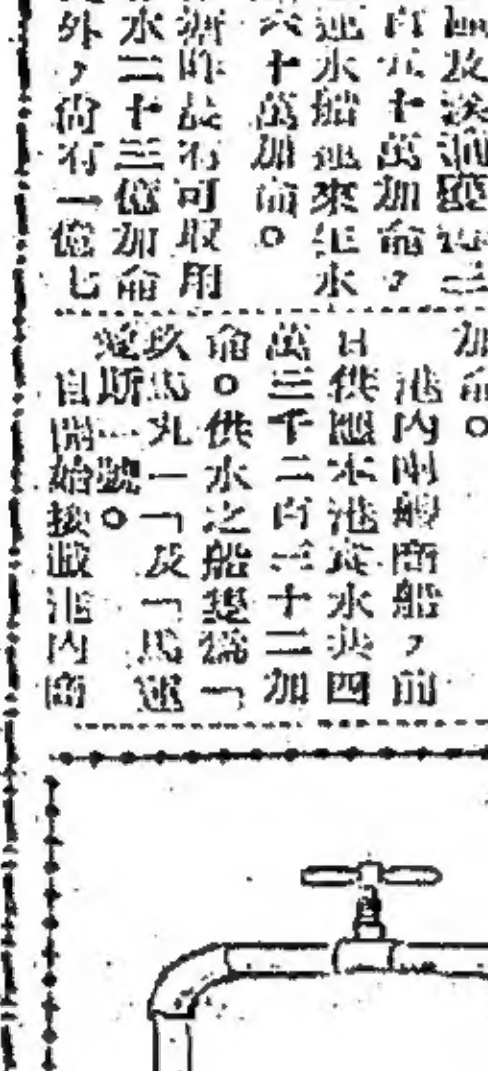 百九十萬加侖，
運水船運來江水
六十萬加侖。
昨晨有可取用
水二十三億加侖
外，尚有一億七
加侖。
港內兩艘商船，前
日供應本港食水共四
萬三千二百三十二加
侖。供水之船隻爲「
玖馬丸一「及「馬
愛斯一號。
自開始接載港內商